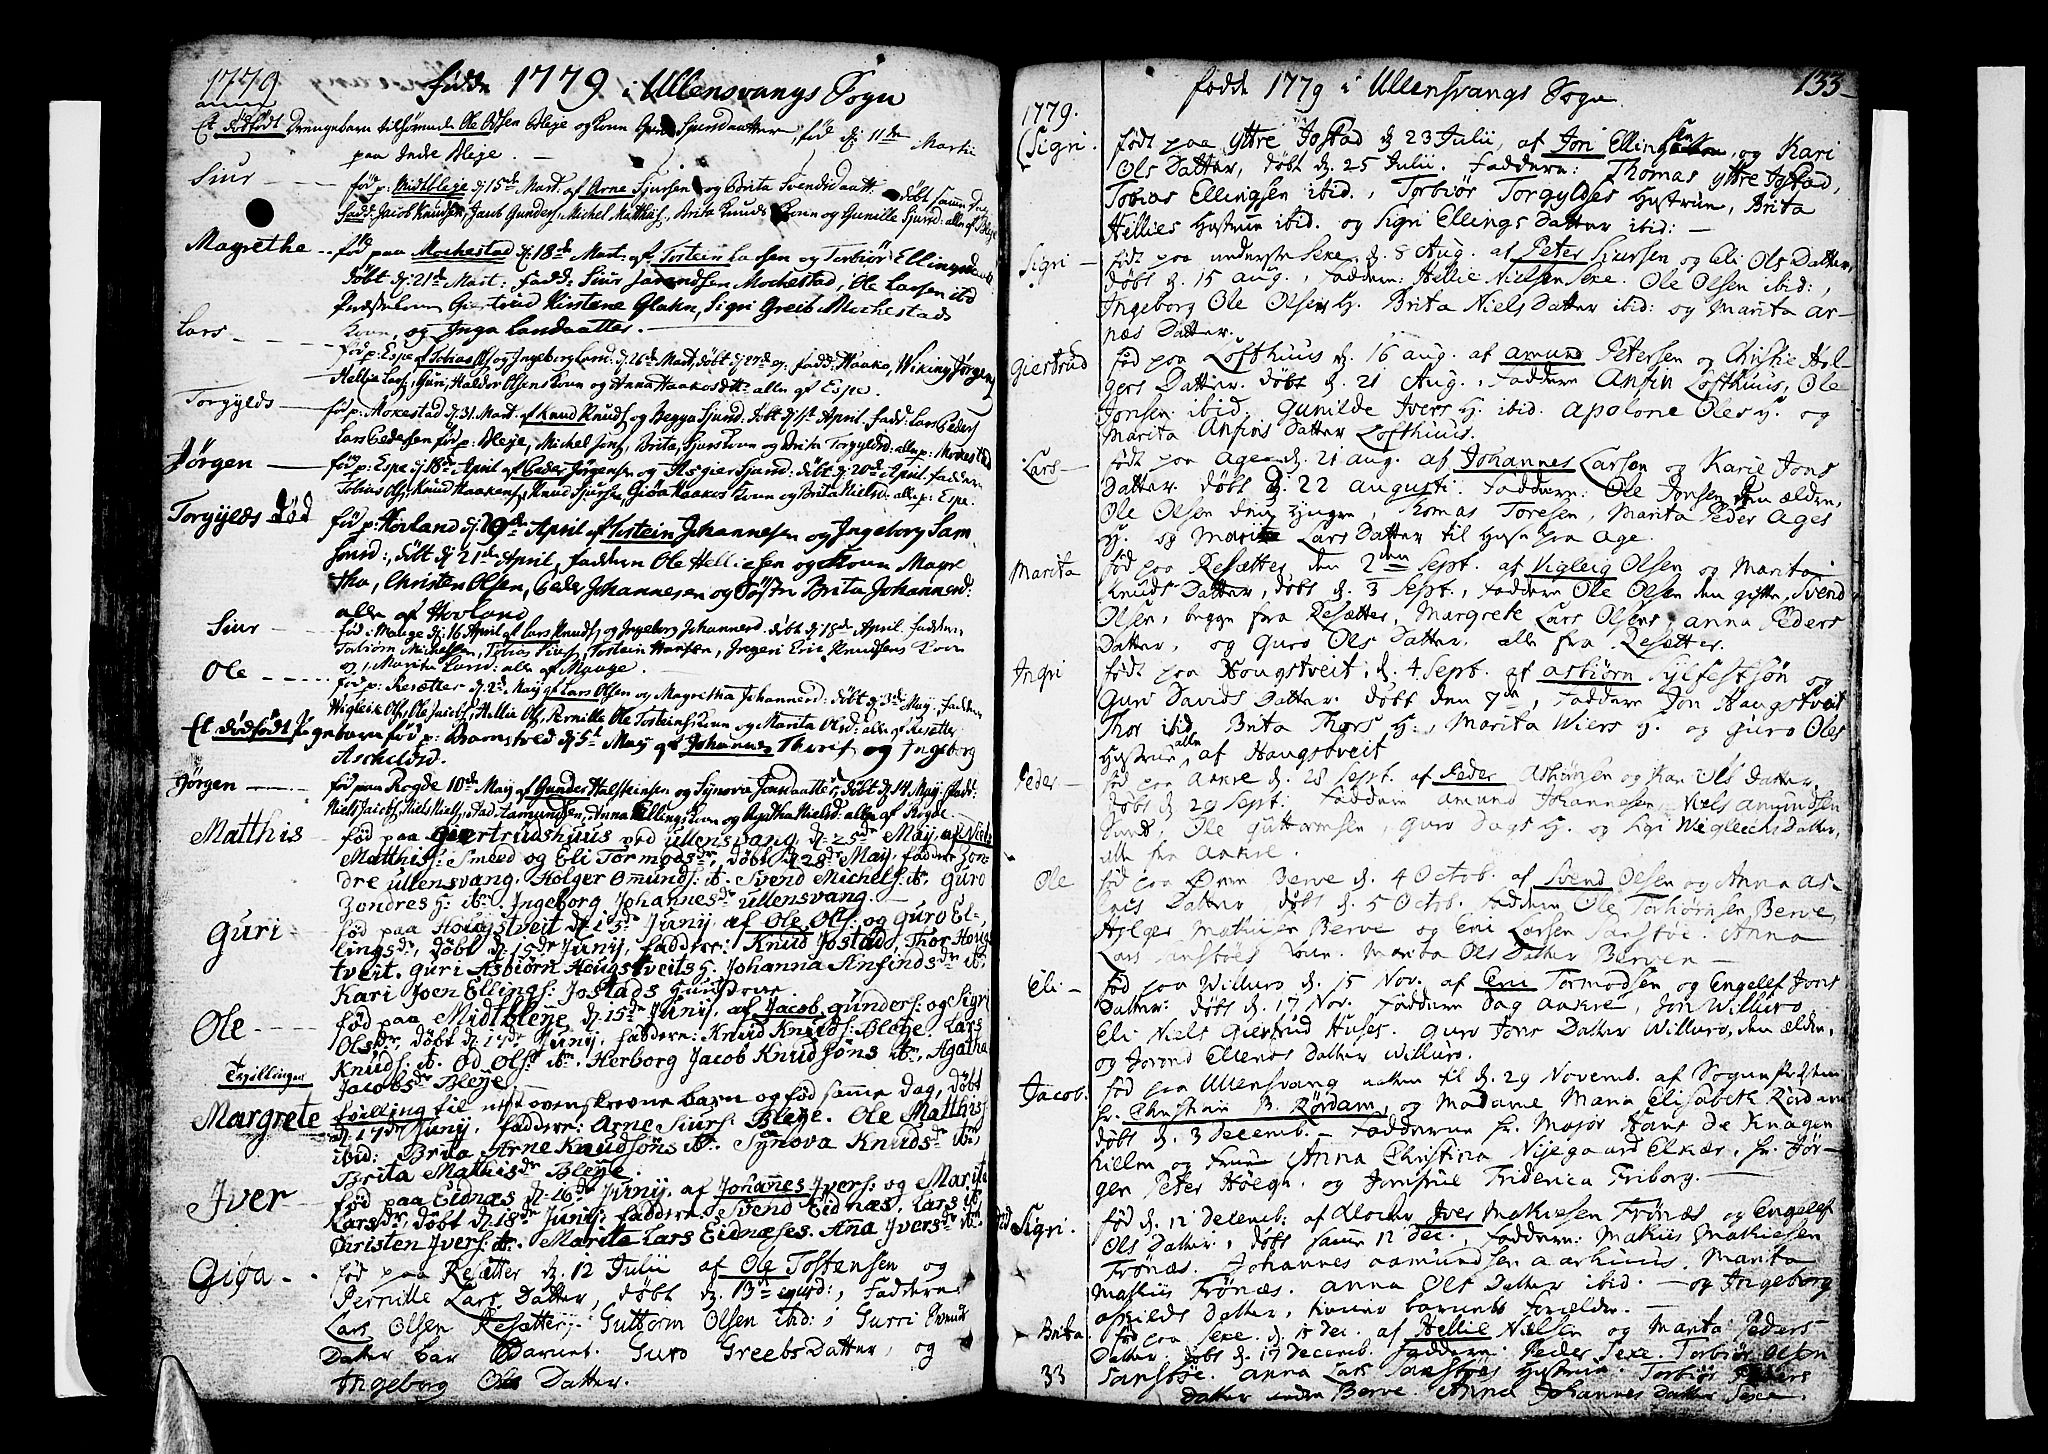 1779 Fødde 1779 i Ullensvangs Sogn
Et dødfødt Drengebarn tilhørende Ole Olsen Bleje og Kone Guro Sjursdaatter, fød dj 11de Martii
paa Indre Bleje.
Siur fød p: Midtbleje dj 15de Mart. af Arne Sjursen og Brita Svendsdaatt. døbt samme Dag
Fadd: Jacob Knuds, Jacob Gunders, Michel Matthis, Brita Knuds Kone og Gunille Sjursd: alle af Bleje
Magrethe fød paa Mochestad dj 18de Mart. af Tostein Larsen og Torbiør Ellingsdaatt
døbt dj 21de Mart: Fadd: Siur Mochestad, Ole Larsen ibd
Giertrud Kirstene Glahn, Sigri Greib Mochestads
Kone, og Inga Landaatter.
Lars fød p: Espe af Tobias Ols og Ingeborg Larsd: dj 26de Mart, døbt dj 27de ej. Fadd: Haako, Wiking Jørgens
Hellie Lars, Guri, Haldor Olsens Kone og Anna Haakosd. alle af Espe.
Torgylds fød p: Mokestad dj 31. Mart. af Knud Knuds og Begga Sjursd: døbt dj 1st April. Fadd: Lars Peders
Lars Pedersen fød p: Bleje, Michel Jons, Brita, Sjurs Kone og Brita Torgyldsd: alle p: Mokestad
Jørgen fød p: Espe dj 18de April af Peder Jørgensen og Asgier Sjursd: døbt dj 20de April. Faddere
Tobias Ols, Knud Haakens, Knud Sjursen, Giøa Haakos Kone og Brita Nielsd. alle p: Espe.
Torgylds død fød p: Hovland dj 19de April af Tostein Johannesen og Ingeborg Sam-
sonsd:, døbt dj 21de April, Faddere Ole Helliesen og Kone Magre
tha, Christen Olsen, Peder Johannesen og Søster Brita Johannesd:
alle af Hovland
Siur fød i Mauge dj 16 April af Lars Knuds, og Ingeborg Johannesd. døbt dj 18de April. Faddere
Torbiørn Michelsen, Tobias Siurs, Tostein Hansen, Ingeri Eric Knudsens Kone
og Marita Larsd: alle af Mauge.
Ole fød p: Resætter dj 2de May af Lars Olsen og Magretha Johannesd: døbt dj 3de May. Faddere
Wigleik Ols, Ole Jacobs, Hellie Ols, Pernille Ole Tosteins Kone og Marita Olsd: alle af Resetter
Et dødfødt Pigebarn fød p: dj 5t May af Johannes og Ingeborg
Ascheldsd.
Jørgen fød paa Rogde 10de May af Gunder Halsteinsen og Synova Jonsdaatter, døbt dj 14 May. Fadd:
Niels Jacobs, Niels Niels, Aad Aamundsen, Anna Ellings Kone og Agatha Nielsd. alle af Rogde.
Matthis fød paa Giertrudshuus ved Ullensvang dj. 25de May af Niels
Matthiss: Smed og Eli Tormodsdr, døbt dj 28de May, Faddere Zon-
dre Ullensvang. Holger Omunds: ib. Svend Michels: ib. Guro
Zondres H: ib. Ingeborg Johannesdr Ullensvang.
Guri fød paa Hougstveit dj 13de Junij, af Ole Ols: og Guro El-
lingsdr, døbt dj 15de Junij, Faddere: Knud Jostad, Thor Houg
tveit. Guri Asbiørn Hougstveits H. Johanna Anfindsdr ib.
Kari Joen Ellings: Jostads Hustrue
Ole fød paa Midtbleye dj 15de Junij, af Jacob Gunders: og Sigri
Olsdr, døbt dj 17de Junij, Faddere: Knud Knuds: Bleye. Lars
Knuds: ib. Od Ols: ib. Herborg Jacob Knudsøns ib. Agatha
Jacobsdr Bleye
Tvillinger
Margrete Tvilling til ovenskrevne barn og fød samme Dag, døbt
dj 17de Junij. Faddere: Arne Siurs: Bleye. Ole Matthis
ibid: Brita Arne Knudsøns ib. Synova Knudsdr ib.
Brita Mathisdr Bleye.
Jver fød paa Eidnæs dj 16de Junij. af Johannes Jvers: og Marita
Larsdr, døbt dj 18de Junij, Faddere: Svend Eidnæs, Lars ib
Christen Jvers: ib. Marite Lars Eidnæses. Ana Jversdr ib.
Giøa fød paa Resætter dj. 12 Julii af Ole Tostensen og
Pernille Lars Datter, døbt dj. 13de ejusd:, Faddere
Lars Olsen Resætter, Guttorm Olsen ibid:, Gurri Knuds
Datter bar Barnet. Guro Greebs Datter, og
Ingeborg Ols Datter.
fødde 1779 i Ullensvangs Sogn. 133
1779.
Sigri. født paa Ytre Jostad d. 23 Julii, af Jon Ellingsen, og Kari
Ols Datter, døbt d. 25 Julii. Faddere: Thomas Ytre Jostad,
Tobias Ellingsen ibid., Torbiør Torgyldses Hustrue, Brita
Hellies Hustrue ibid. og Sigri Ellings Datter ibid:
Sigri født paa underste Sexe d. 8 Aug. af Peter Siursen og Eli Ols Datter,
døbt d. 15 aug., Faddere: Hellie Nielsen Sexe. Ole Olsen ibid:,
Ingeborg Ole Olsens H. Brita Niels Datter ibid: og Marita Ar-
næs Datter.
Giertrud fød paa Lofthuus d. 16 aug. af Amund Petersen og Christie Hol-
gers Datter. døbt d. 21 Aug., Faddere Anfin Lofthuus, Ole
Jonsen ibid, Gunilde Jvers H. ibid. Apolone Oles H. og
Marita Anfins Datter Lofthuus.
Lars født paa Age d. 21 aug. af Johannes Larsen og Karie Jons
Datter. døbt d. 22 augusti. Faddere: Ole Jonsen den ælden,
Ole Olsen den yngre, Thomas Toresen, Marita Peder Ages
H. og Marita Lars Datter til Huse paa Age.
Marita fød paa Resætter den 2den Sept. af Vigleig Olsen og Marita
Knuds Datter, døbt d. 3 Sept., Faddere Ole Olsen den gifte, Svend
Olsen, begge fra Resætter, Margrete Lars Olsens, Anna Peders
Datter, og Guro Ols Datter. alle fra Resætter.
Ingri født paa Hougstveit, d. 4 Sept. af Asbiørn Sylfestsøn og
Guri Davids Datter. døbt den 7de, Faddere Jon Haugstveit
Thor ibid Brita Thors H., Marita Wiers H. og Guro Oles
Hustrue, alle af Haugstveit
Peder fød paa Aakre d. 28 Sept. af Peder Asbiørnsen og Kari Ols Datter,
døbt d. 29 Sept: Faddere Amund Johannesen Niels Amundsen
Ole Guttormsen, Guro Dags H. og Sigri Wigleichs Datter,
alle fra Aakre.
Ole fød paa Øvre Berve d. 4 Octob. af Svend Olsen og Anna As-
Datter, døbt d. 5 Octob. Faddere Ole Torbiørnsen Berve,
Holger Mathisen Berve og Eric Larsen Sanstøe. Anna
Lars Sanstøes Kone. Marita Ols Datter Berven
Eli fød paa Willuro d. 15 Nov. af Eric Tormodsen, og Engelef Jons
Datter: døbt d. 17 Nov. Faddere Dag Aakre, Jon Willuro,
Eli Niels Giertrud Huses. Guro Jons Datter Willuro, den ælden,
og Jorend Datter Willuro.
Jacob. fød paa Ullensvang natten til d. 29 Novemb. af Sogne Præsten
Hr. Christian B. Rördam, og Madame Maria Elisabeth Rördam
døbt d. 3 Decemb. Fadderne Hr. Major Hans de Knagen
hielm og Frue Anna Christina Nijegaard Elkær, Hr. Jør-
gen Peter Høegh. og Jomfrue Friderica Friborg.
Sigri. fød d. 12 Decemb: af Klocker Jver Mathiesen Trönæs og Engelef
Ols Datter, døbt samme 12 Dec., Faddere: Mathias Mathiesen
Trönæs. Johannes Aamundsen Aarhuus. Marita
Mathias Trönæs. Anna Ols Datter ibid. og Ingeborg
Datter, barnets forældre.
Brita. fød paa Sexe. d. 15 Dec. af Hellie Nielsen og Marita Peders
Datter. døbt d. 17 Decemb. Faddere. Peder Sexe. Torbiørn Olsen
Sanstöe. Anna Lars Sanstöes Hustrue. Torbiør Peders
33 Datter Berve. Anna Johannes Datter Sexe.